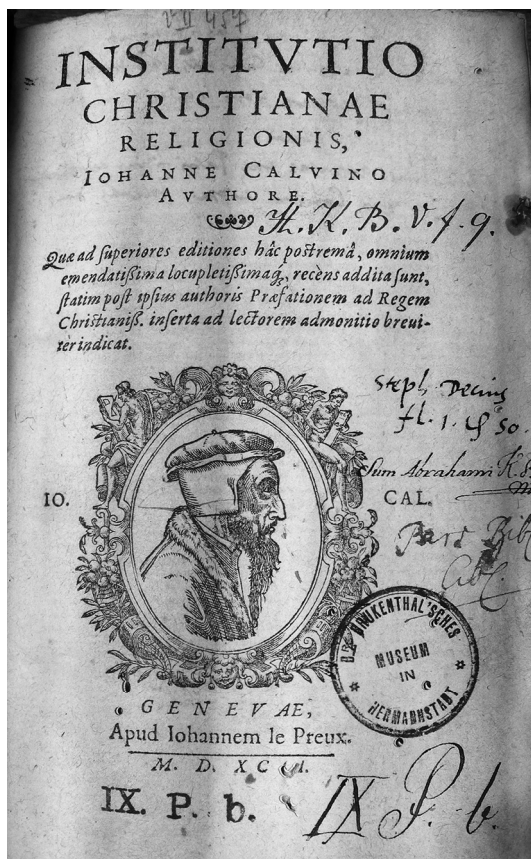 V II 457
INSTITVTIO
CHRISTIANAE
RELIGIONIS,
IOHANNE CALVINO
AVTHORE.
H. K. B. V. f. g.
Quæ ad superiores editiones hâc postremâ, omnium
emendatißima locupletißimaq́, recens addita sunt,
statim post ipsius authoris Præfationem ad Regem
Christianiß. inserta ad lectorem admonitio breui-
ter indicat.
Steph. Decius
fl. 1. 50.
Sum Abrahami K.
IO.
CAL.
B. BRUKENTHAL'SCHES
MUSEUM
IN
HERMANNSTADT
GENEVAE,
Apud Iohannem le Preux.
M. D. XC
IX. P. b.
IX P. b.